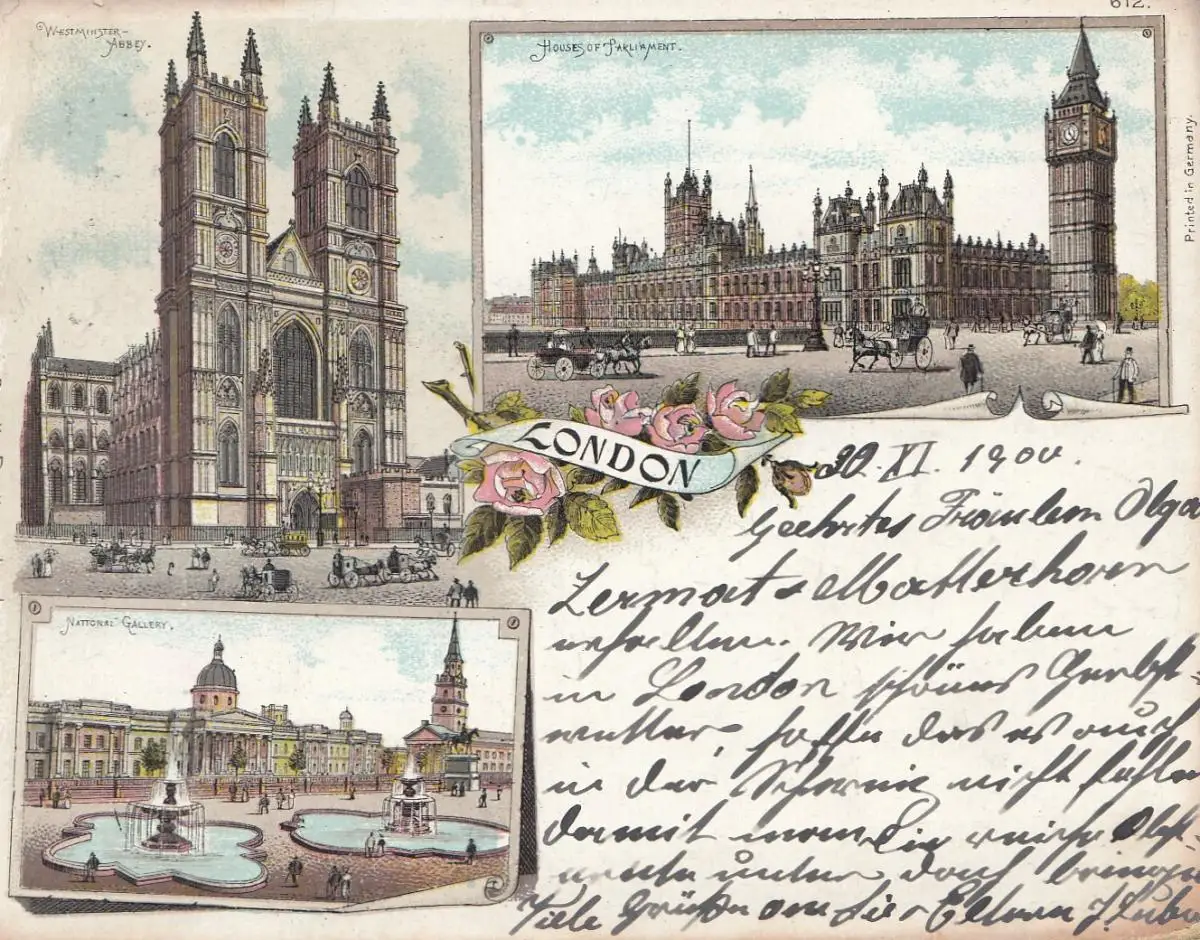 612.
©Westminster-
Abbey.
Houses of Parliament.
Printed in Germany.
LONDON
National Gallery.
30. XI. 1900.
Geehrtes Fräulein Olga
Zermat & Matterhorn
erhalten. Wir haben
in London schönes Herbst-
wetter, hoffe das es auch
in der Schweiz nicht fehlen
damit man die reiche Obst-
ernte unter dach bringen
Viele Grüße an die Eltern J. Hub